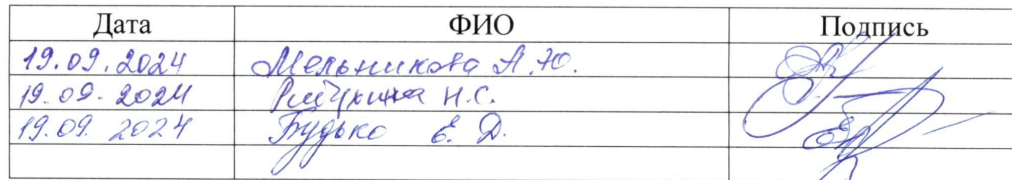 Дата ФИО Подпись
19.09.2024 Мельникова А.Ю.
19.09.2024 Н.С.
19.09.2024 Будько Е.Д.